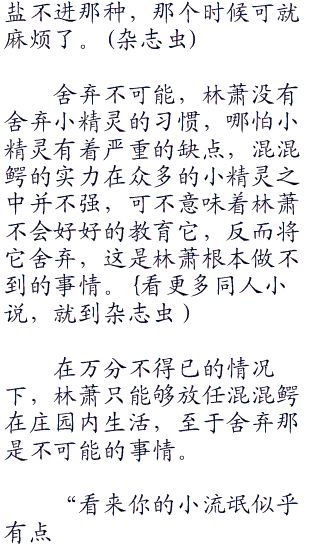 盐不进那种，那个时候可就
麻烦了。(杂志虫)
舍弃不可能，林萧没有
舍弃小精灵的习惯，哪怕小
精灵有着严重的缺点，混混
鳄的实力在众多的小精灵之
中并不强，可不意味着林萧
不会好好的教育它，反而将
它舍弃，这是林萧根本做不
到的事情。{看更多同人小
说，就到杂志虫 )
在万分不得已的情况
下，林萧只能够放任混混鳄
在庄园内生活，至于舍弃那
是不可能的事情。
“看来你的小流氓似乎
有点